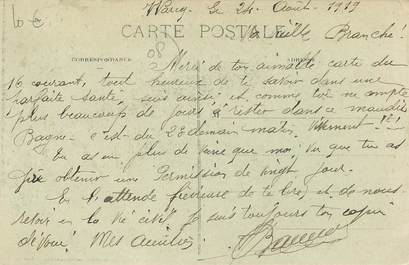 10 €
le 24 Août 1919
CARTE POSTALE
Vieille Branche!
CORRESPONDANCE
Merci de ton aimable carte du
16 courant, tout heureux de te savoir dans une
parfaite santé, suis aussi et comme toi ne compte
plus beaucoup de jours à rester dans ce maudit
Bagne c'est du 28 demain matin. Vivement!!
Tu as eu plus de veine que moi, vu que tu as
pu obtenir une Permission de vingt jour.
En attende de te lire, et de nous
revoir en la Vie civil je suis toujours ton copain
dévoué! Mes Amitiés